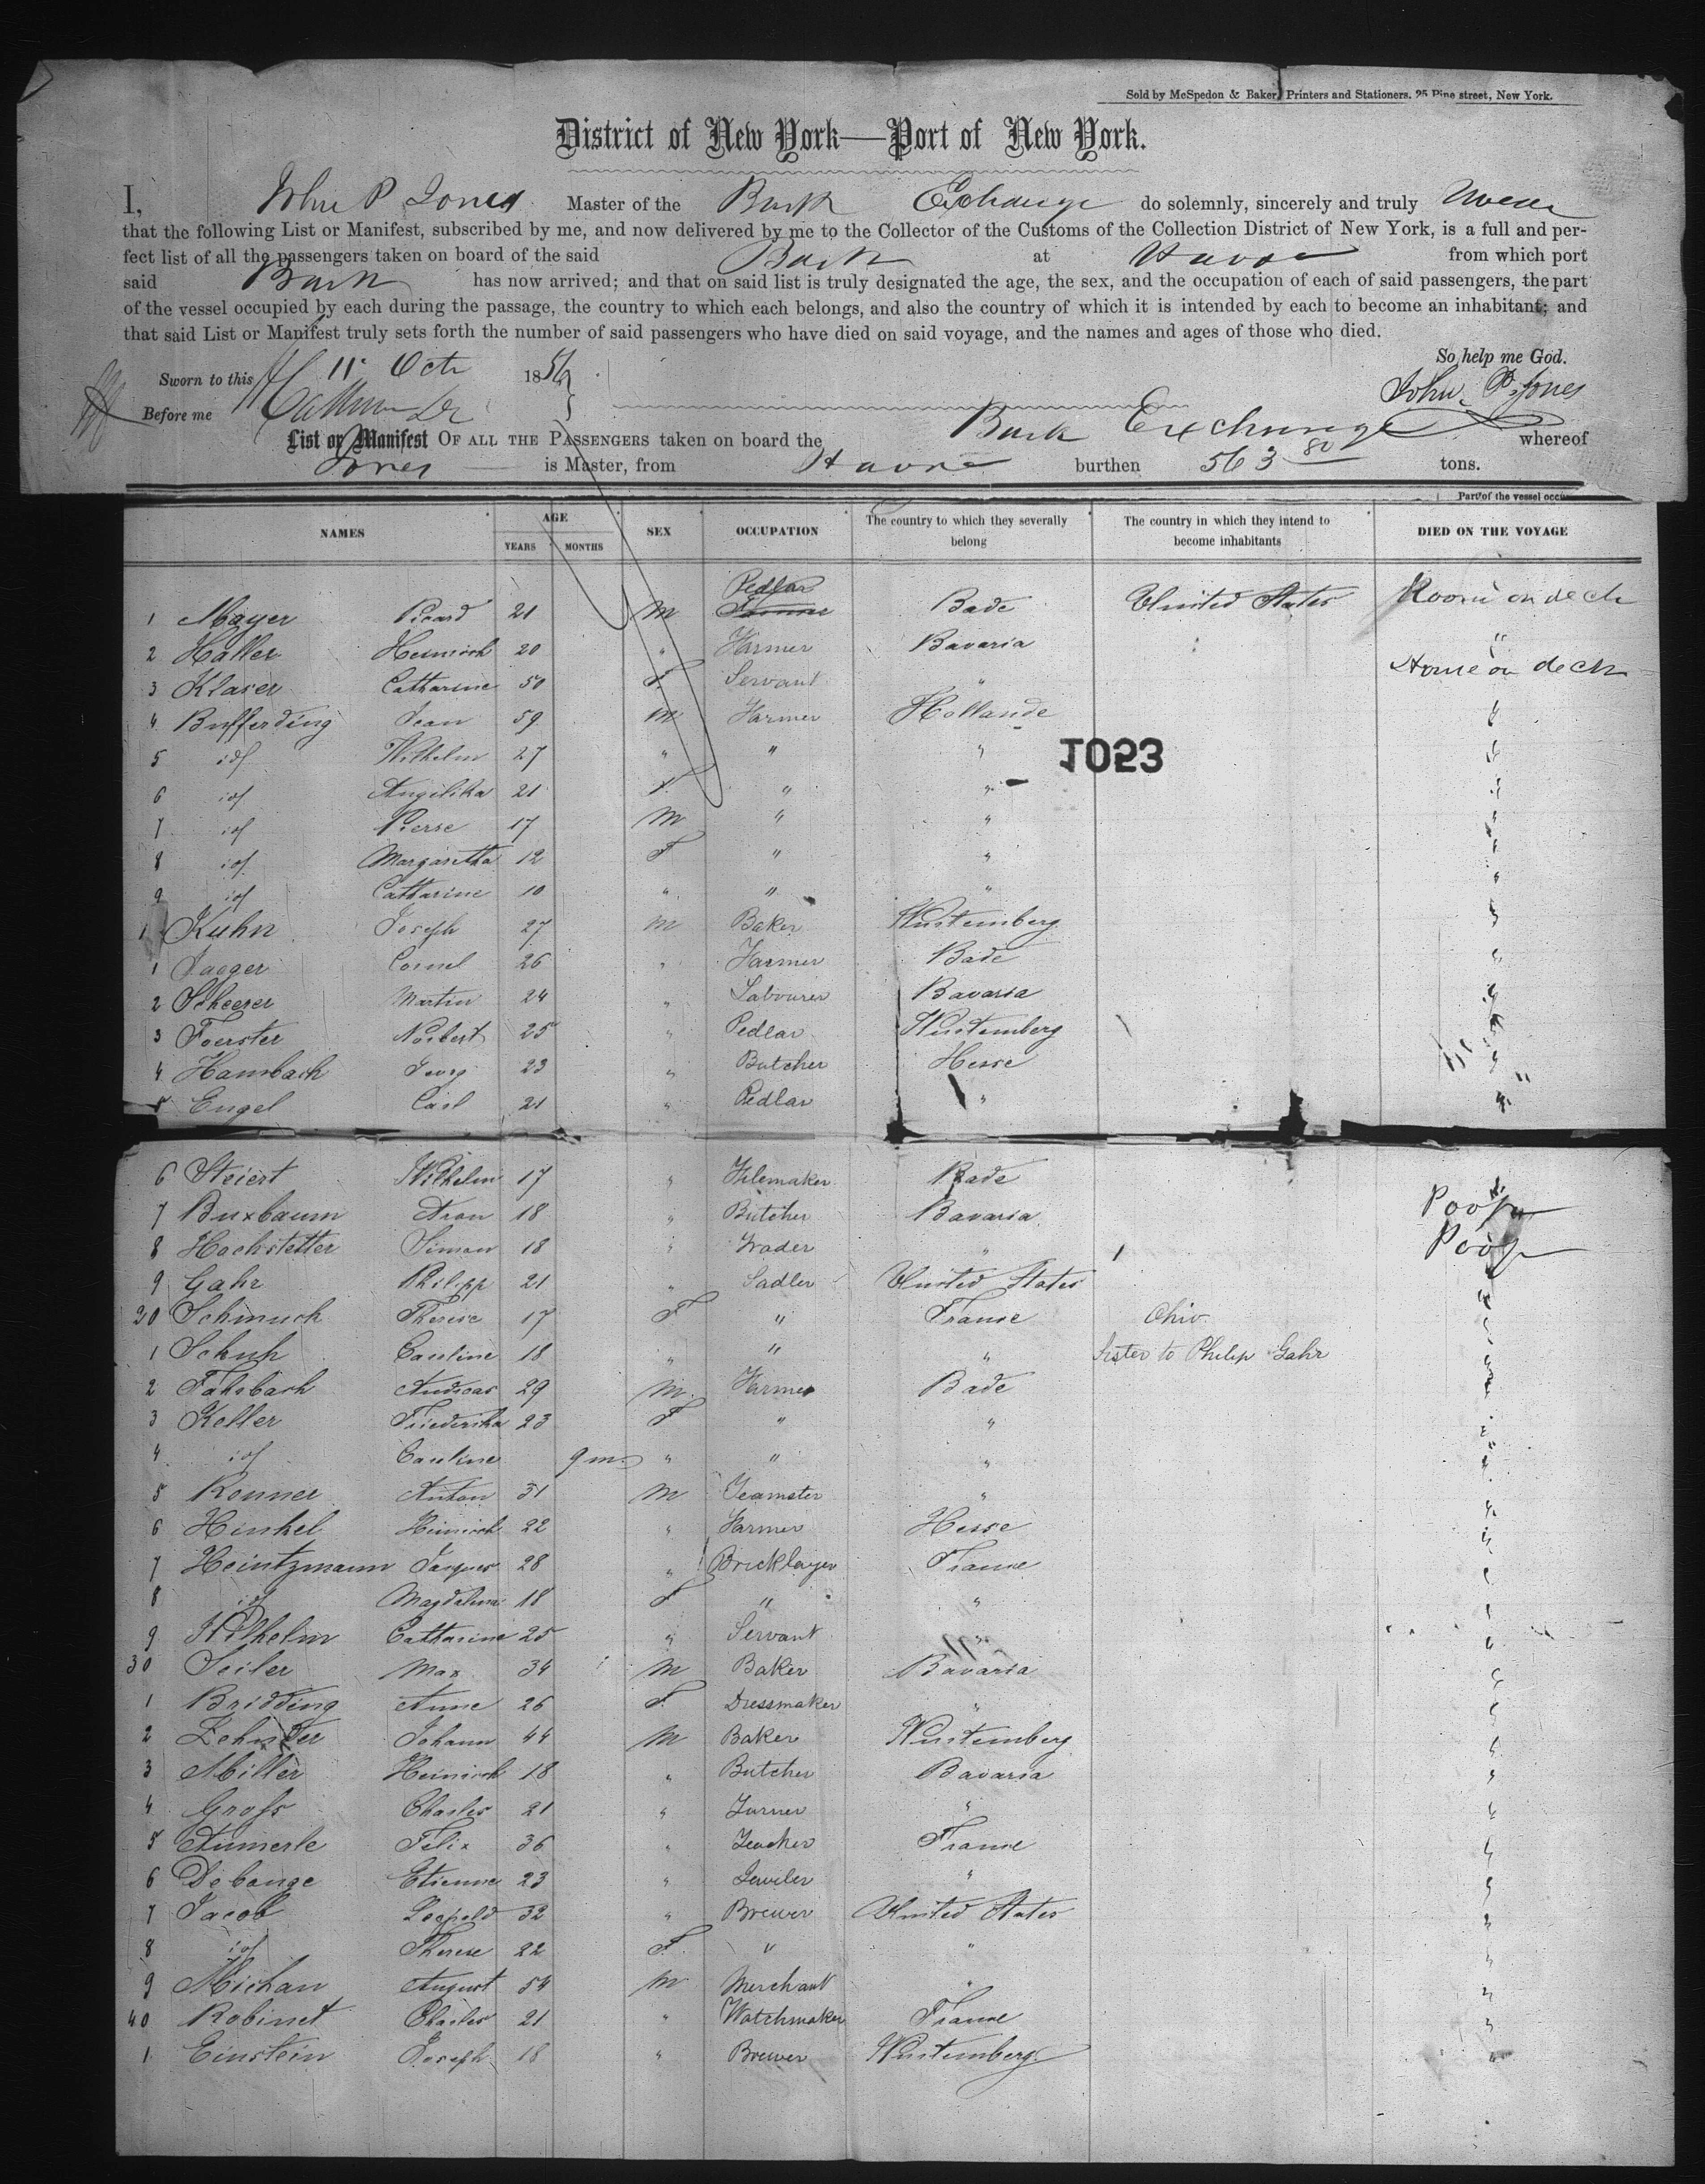 Sold by McSpedon & Baker, Printers and Stationers. 25 Pine street, New York.
District of New York—Port of New York.
I, John P Jones Master of the Bark Exchange do solemnly, sincerely and truly swear
that the following List or Manifest, subscribed by me, and now delivered by me to the Collector of the Customs of the Collection District of New York, is a full and per-
fect list of all the passengers taken on board of the said Bark at Havre from which port
said Bark has now arrived; and that on said list is truly designated the age, the sex, and the occupation of each of said passengers, the part
of the vessel occupied by each during the passage, the country to which each belongs, and also the country of which it is intended by each to become an inhabitant; and
that said List or Manifest truly sets forth the number of said passengers who have died on said voyage, and the names and ages of those who died.
So help me God.
Sworn to this 11 Octr 1856
John P. Jones
Before me
List or Manifest OF ALL THE PASSENGERS taken on board the Bark Exchange whereof
Jones is Master, from Havre burthen 563 80 tons.
Part of the vessel occu
NAMES AGE YEARS MONTHS SEX OCCUPATION The country to which they severally belong The country in which they intend to become inhabitants DIED ON THE VOYAGE
Pedlar
1 Mayer Picard 21 M Farmer Bade United States Room on deck
2 Haller Heinrich 20 " Farmer Bavaria "
3 Klaser Catharine 50 F Servant " House on deck
4 Bufferding Jean 59 M Farmer Hollande "
5 id Wilhelm 27 " " " "
1023
6 id Angelika 21 F " " "
7 id Pierre 17 M " " "
8 id Margaretha 12 F " " "
9 id Catharine 10 " " " "
1 Kuhn Joseph 27 M Baker Wurtemberg "
1 Jaeger Cornel 26 " Farmer Bade "
2 Scheerer Martin 24 " Labourer Bavaria "
3 Foerster Norbert 25 " Pedlar Wurtemberg "
4 Hambach Georg 23 " Butcher Hesse "
5 Engel Carl 21 " Pedlar " "
6 Steiert Wilhelm 17 " Filemaker Bade "
7 Buxbaum Aron 18 " Butcher Bavaria Poop
8 Hochstetter Simon 18 " Trader " Poop
9 Gahr Philipp 21 " Sadler United States "
20 Schmuck Therese 17 F " France Ohio "
1 Schuh Cauline 18 " " " Sister to Philip Gahr "
2 Fahsbach Andreas 29 M Farmer Bade "
3 Keller Friederika 23 F " " "
4 id Cauline 9 m " " " "
5 Renner Anton 31 M Teamster " "
6 Hinkel Heinrich 22 " Farmer Hesse "
7 Heintzmann Jacques 28 " Bricklayer France "
8 id Magdalena 18 F " " "
9 Wilhelm Catharine 25 " Servant " "
30 Seiler Max 34 M Baker Bavaria "
1 Bridding Anne 26 F Dressmaker " "
2 Zehnder Johann 44 M Baker Wurtemberg "
3 Miller Heinrich 18 " Butcher Bavaria "
4 Gross Charles 21 " Turner " "
5 Aumerle Felix 36 " Teacher France "
6 Debange Etienne 23 " Jeweler " "
7 Jacob Leopold 32 " Brewer United States "
8 id Therese 22 F " " "
9 Michan August 54 M Merchant " "
40 Robinet Charles 21 " Watchmaker France "
1 Einstein Joseph 18 " Brewer Wurtemberg "